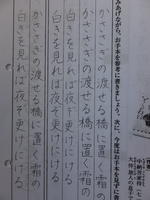 みあげながら、お手本を参考に書きましょう。次に、今度はお手本を見ずに書
中納言家持
大伴旅人の息子
かささぎの渡せる橋に置く霜の
白きを見れば夜ぞ更けにける
白きを見れば夜ぞ更けにける。
かささぎの渡せる橋に置く霜の
白きを見れば夜ぞ更けにける。